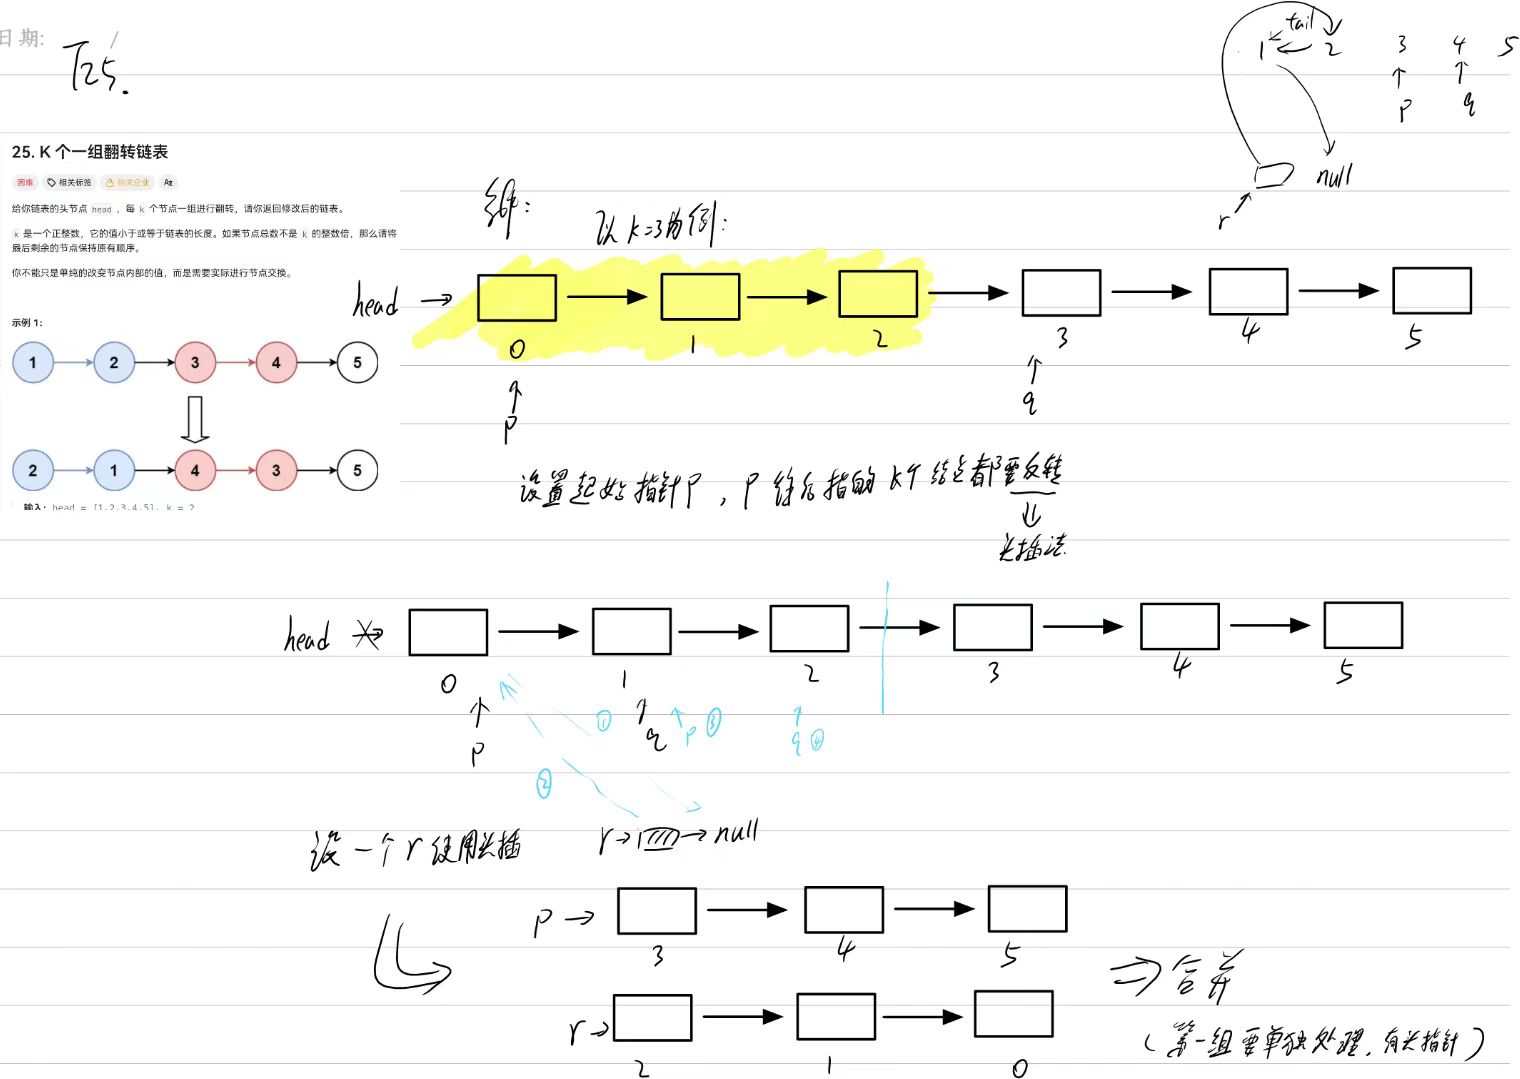 日期: /
T25.
25. K 个一组翻转链表
困难 相关标签 相关企业 Az
给你链表的头节点 head ，每 k 个节点一组进行翻转，请你返回修改后的链表。
k 是一个正整数，它的值小于或等于链表的长度。如果节点总数不是 k 的整数倍，那么请将
最后剩余的节点保持原有顺序。
你不能只是单纯的改变节点内部的值，而是需要实际进行节点交换。
示例 1：
1 2 3 4 5
2 1 4 3 5
输入：head = [1,2,3,4,5], k = 2
tail
1 2 3 4 5
p q
null
r
以 k=3 为例：
head
0 1 2 3 4 5
p q
设置起始指针P，P往后指的k个结点都要反转
头插法
head
0 1 2 3 4 5
p ① q p ③ q ④
②
设一个 r 使用头插 r null
p
3 4 5
合并
r
2 1 0
（第一组要单独处理，有头指针）